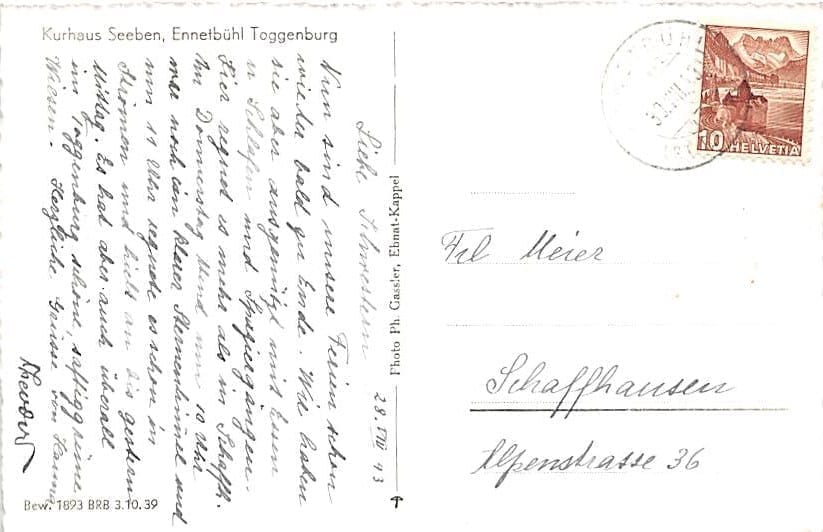 Kurhaus Seeben, Ennetbühl Toggenburg
28. VIII 43
Liebe Schwestern
Nun sind unsere Ferien schon
wieder bald zu Ende. Wir haben
sie aber ausgenützt mit Essen
u Schlafen und Spaziergängen.
Hier regnet es mehr als in Schaffh.
Am Donnerstag Abend um 10 Uhr
war noch ein klarer Sternenhimmel und
um 11 Uhr regnete es schon in
Strömen und hielt an bis gestern
Mittag. Es hat aber auch überall
im Toggenburg schöne, saftiggrüne
Wiesen. Herzliche Grüsse von Hanna
Theodor
Bew. 1893 BRB 3.10.39
Photo Ph. Gassler, Ebnat-Kappel
10 HELVETIA
Frl Meier
Schaffhausen
Alpenstrasse 36